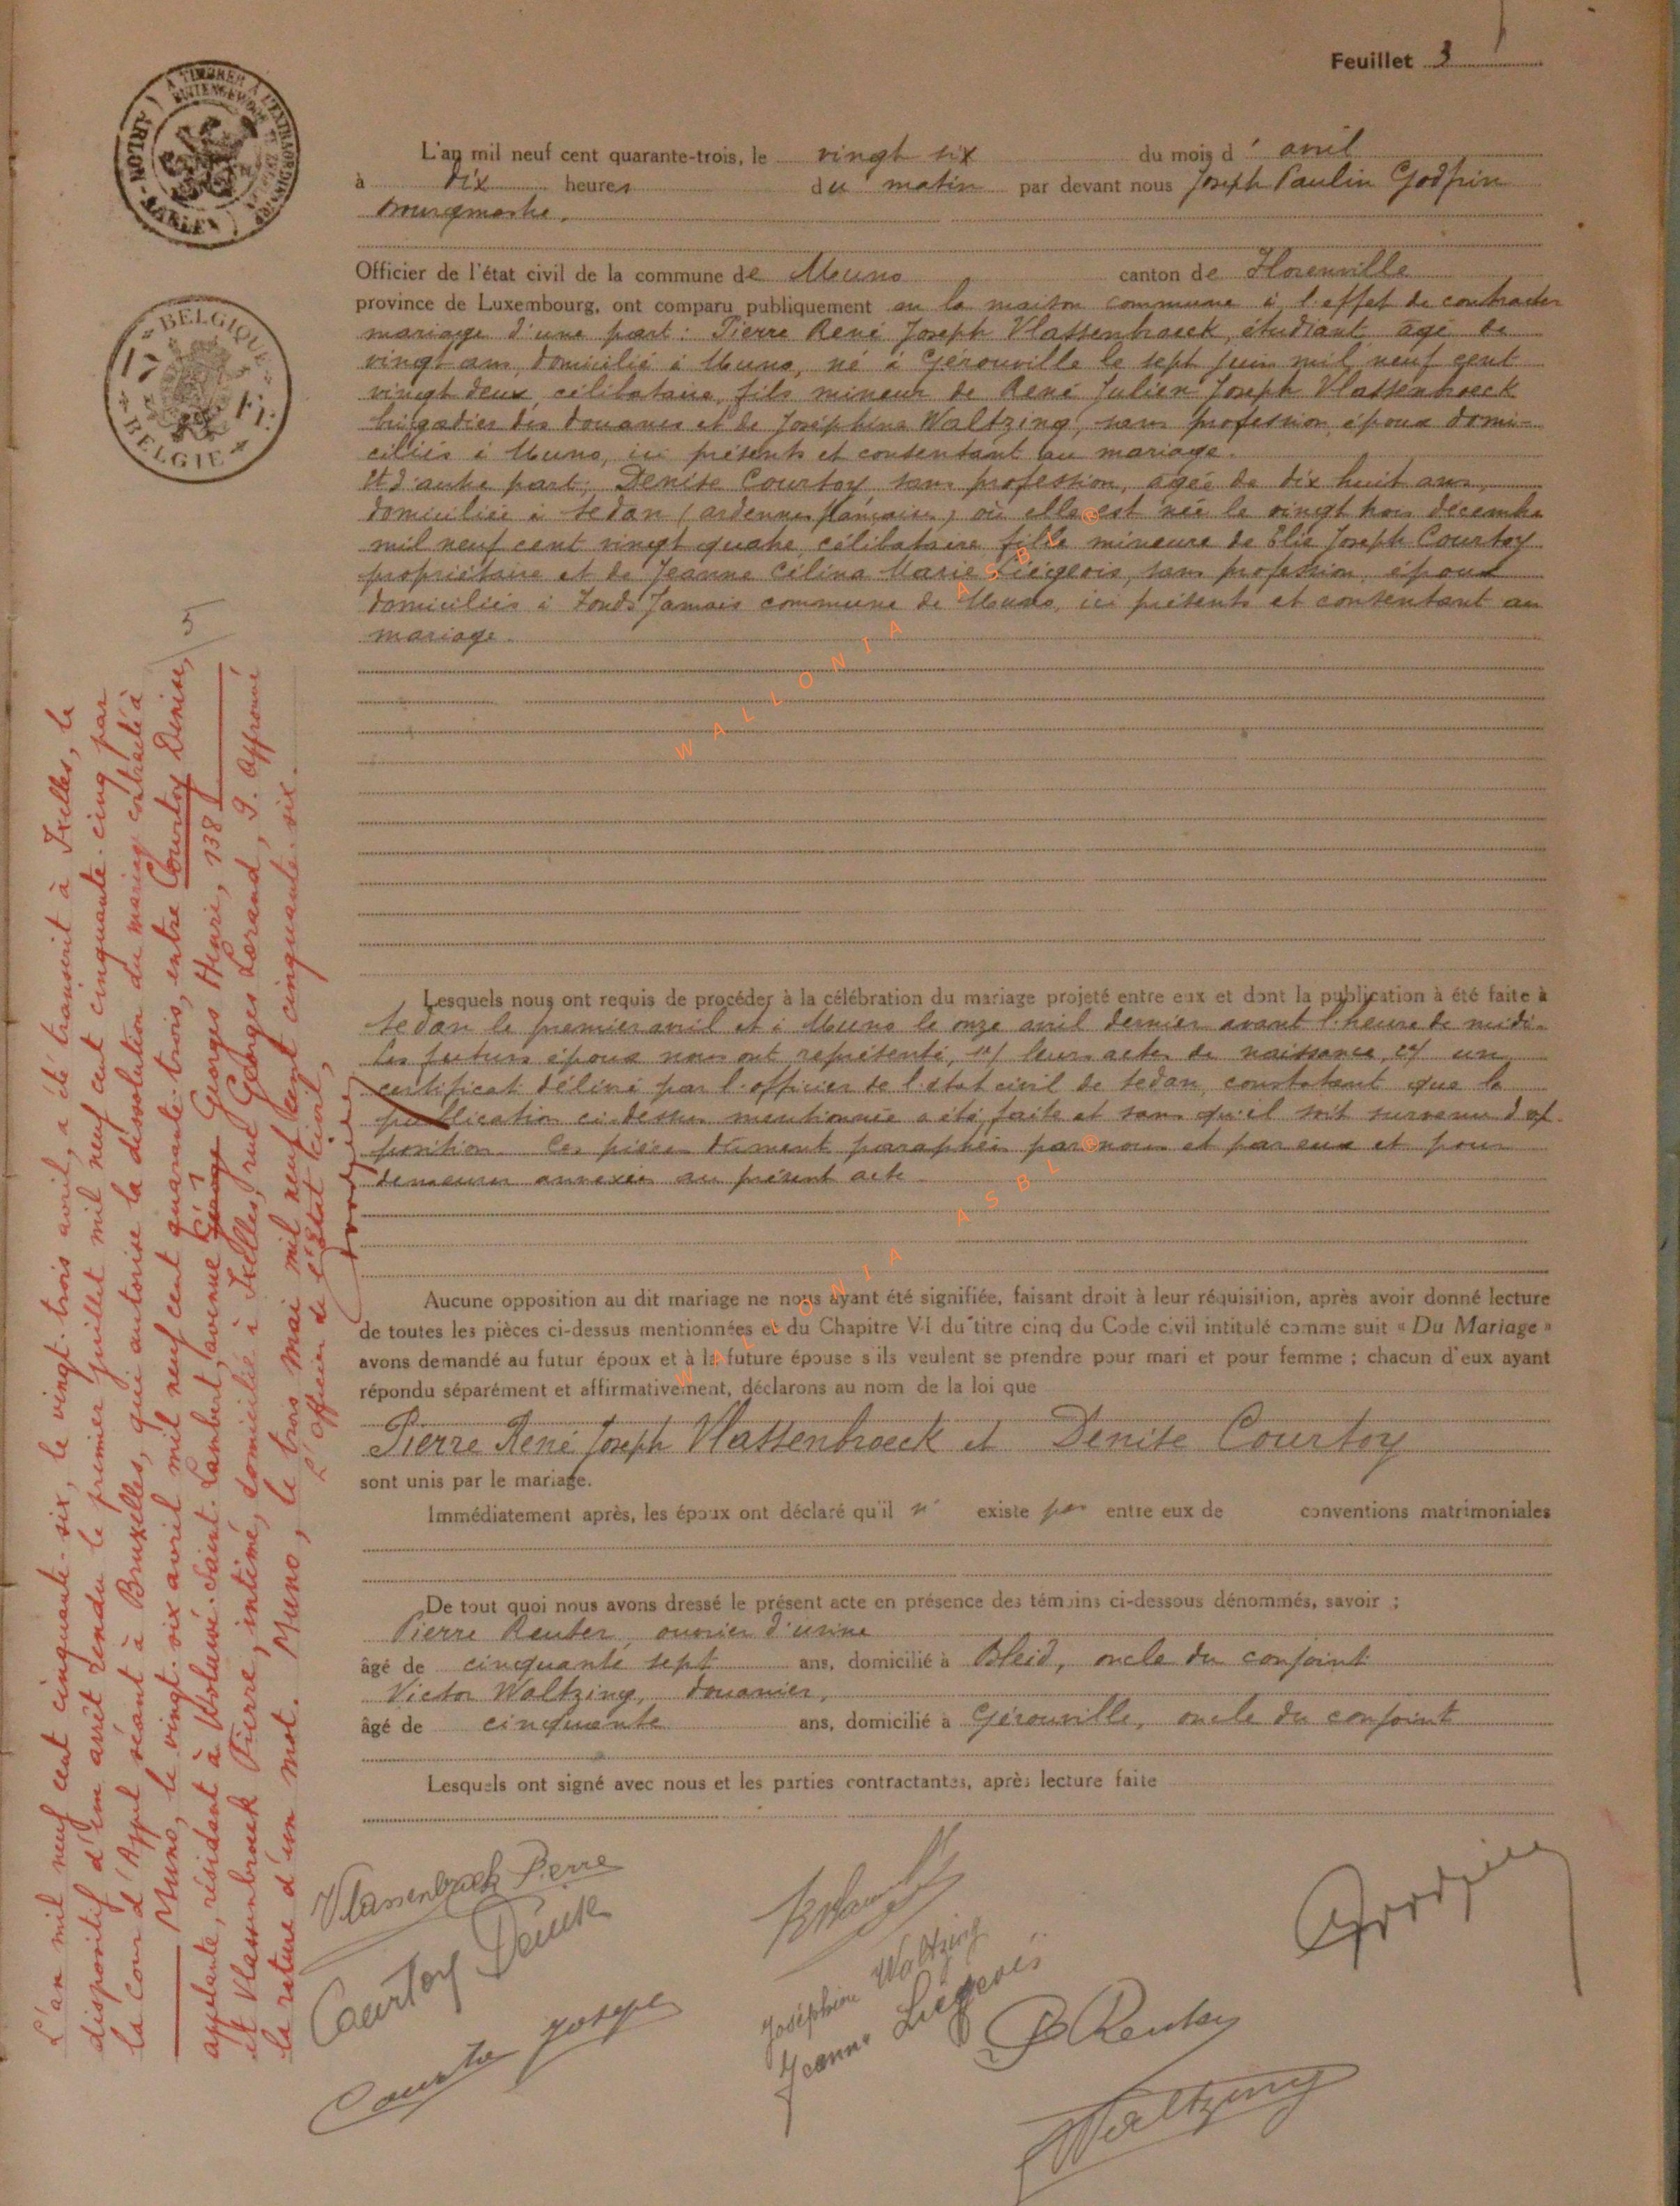 Feuillet 3
A TIMBRER A L'EXTRAORDINAIRE
BUITENGEWOON TE ZEGELEN
ARLON - AARLEN
BELGIQUE
17 Fr
BELGIE
L'an mil neuf cent quarante-trois, le vingt six du mois d'avril
à dix heures du matin par devant nous Joseph Paulin Godfrin
bourgmestre.
Officier de l'état civil de la commune de Muno canton de Florenville
province de Luxembourg, ont comparu publiquement en la maison commune à l'effet de contracter
mariage d'une part : Pierre René Joseph Vlassenbroeck, étudiant âgé de
vingt ans, domicilié à Muno, né à Gérouville le sept juin mil neuf cent
vingt deux, célibataire, fils mineur de René Julien Joseph Vlassenbroeck
brigadier des douanes et de Joséphine Waltzing, sans profession, époux domi-
ciliés à Muno, ici présents et consentant au mariage.
Et d'autre part, Denise Courtoy, sans profession, agée de dix huit ans,
domiciliée à Sedan (ardennes françaises) où elle est née le vingt trois décembre
mil neuf cent vingt quatre, célibataire fille mineure de Elie Joseph Courtoy
propriétaire et de Jeanne Célina Marie Liégeois, sans profession, époux
domiciliés à Fonds Jamais commune de Muno, ici présents et consentant au
mariage.
Lesquels nous ont requis de procéder à la célébration du mariage projeté entre eux et dont la publication à été faite à
Sedan le premier avril et à Muno le onze avril dernier avant l'heure de midi.
Les futurs époux nous ont représenté, 1°/ leurs actes de naissance, 2°/ un
certificat délivré par l'officier de l'état civil de Sedan, constatant que la
publication ci-dessus mentionnée a été faite et sans qu'il soit survenu d'op-
position. Ces pièces dûment paraphées par nous et par eux et pour
demeurer annexées au présent acte
Aucune opposition au dit mariage ne nous ayant été signifiée, faisant droit à leur réquisition, après avoir donné lecture
de toutes les pièces ci-dessus mentionnées et du Chapitre VI du titre cinq du Code civil intitulé comme suit « Du Mariage »
avons demandé au futur époux et à la future épouse s'ils veulent se prendre pour mari et pour femme ; chacun d'eux ayant
répondu séparément et affirmativement, déclarons au nom de la loi que
Pierre René Joseph Vlassenbroeck et Denise Courtoy
sont unis par le mariage.
Immédiatement après, les époux ont déclaré qu'il n' existe pas entre eux de conventions matrimoniales
De tout quoi nous avons dressé le présent acte en présence des témoins ci-dessous dénommés, savoir :
Pierre Reuter, ouvrier d'usine
âgé de cinquante sept ans, domicilié à Bleid, oncle du conjoint
Victor Waltzing, douanier,
âgé de cinquante ans, domicilié à Gérouville, oncle du conjoint
Lesquels ont signé avec nous et les parties contractantes, après lecture faite
Vlassenbroeck Pierre
Courtoy Denise
Courtoy Joseph
Joséphine Waltzing
Jeanne Liégeois
P Reuter
Waltzing
Godfrin
5
L'an mil neuf cent cinquante-six, le vingt-trois avril, a été transcrit à Ixelles, le
dispositif d'un arrêt rendu le premier juillet mil neuf cent cinquante-cinq par
la cour d'Appel séant à Bruxelles, qui autorise la dissolution du mariage contracté à
Muno, le vingt-six avril mil neuf cent quarante-trois, entre Courtoy Denise,
appelante, résidant à Woluwé-Saint-Lambert, avenue Georges Henri, 138
et Vlassenbroeck Pierre, intimé, domicilié à Ixelles, rue Georges Lorand, 9. Approuvé
la rature d'un mot. Muno, le trois mai mil neuf cent cinquante-six.
L'officier de l'Etat civil,
Godfrin
WALLONIA ASBL ®
WALLONIA ASBL ®